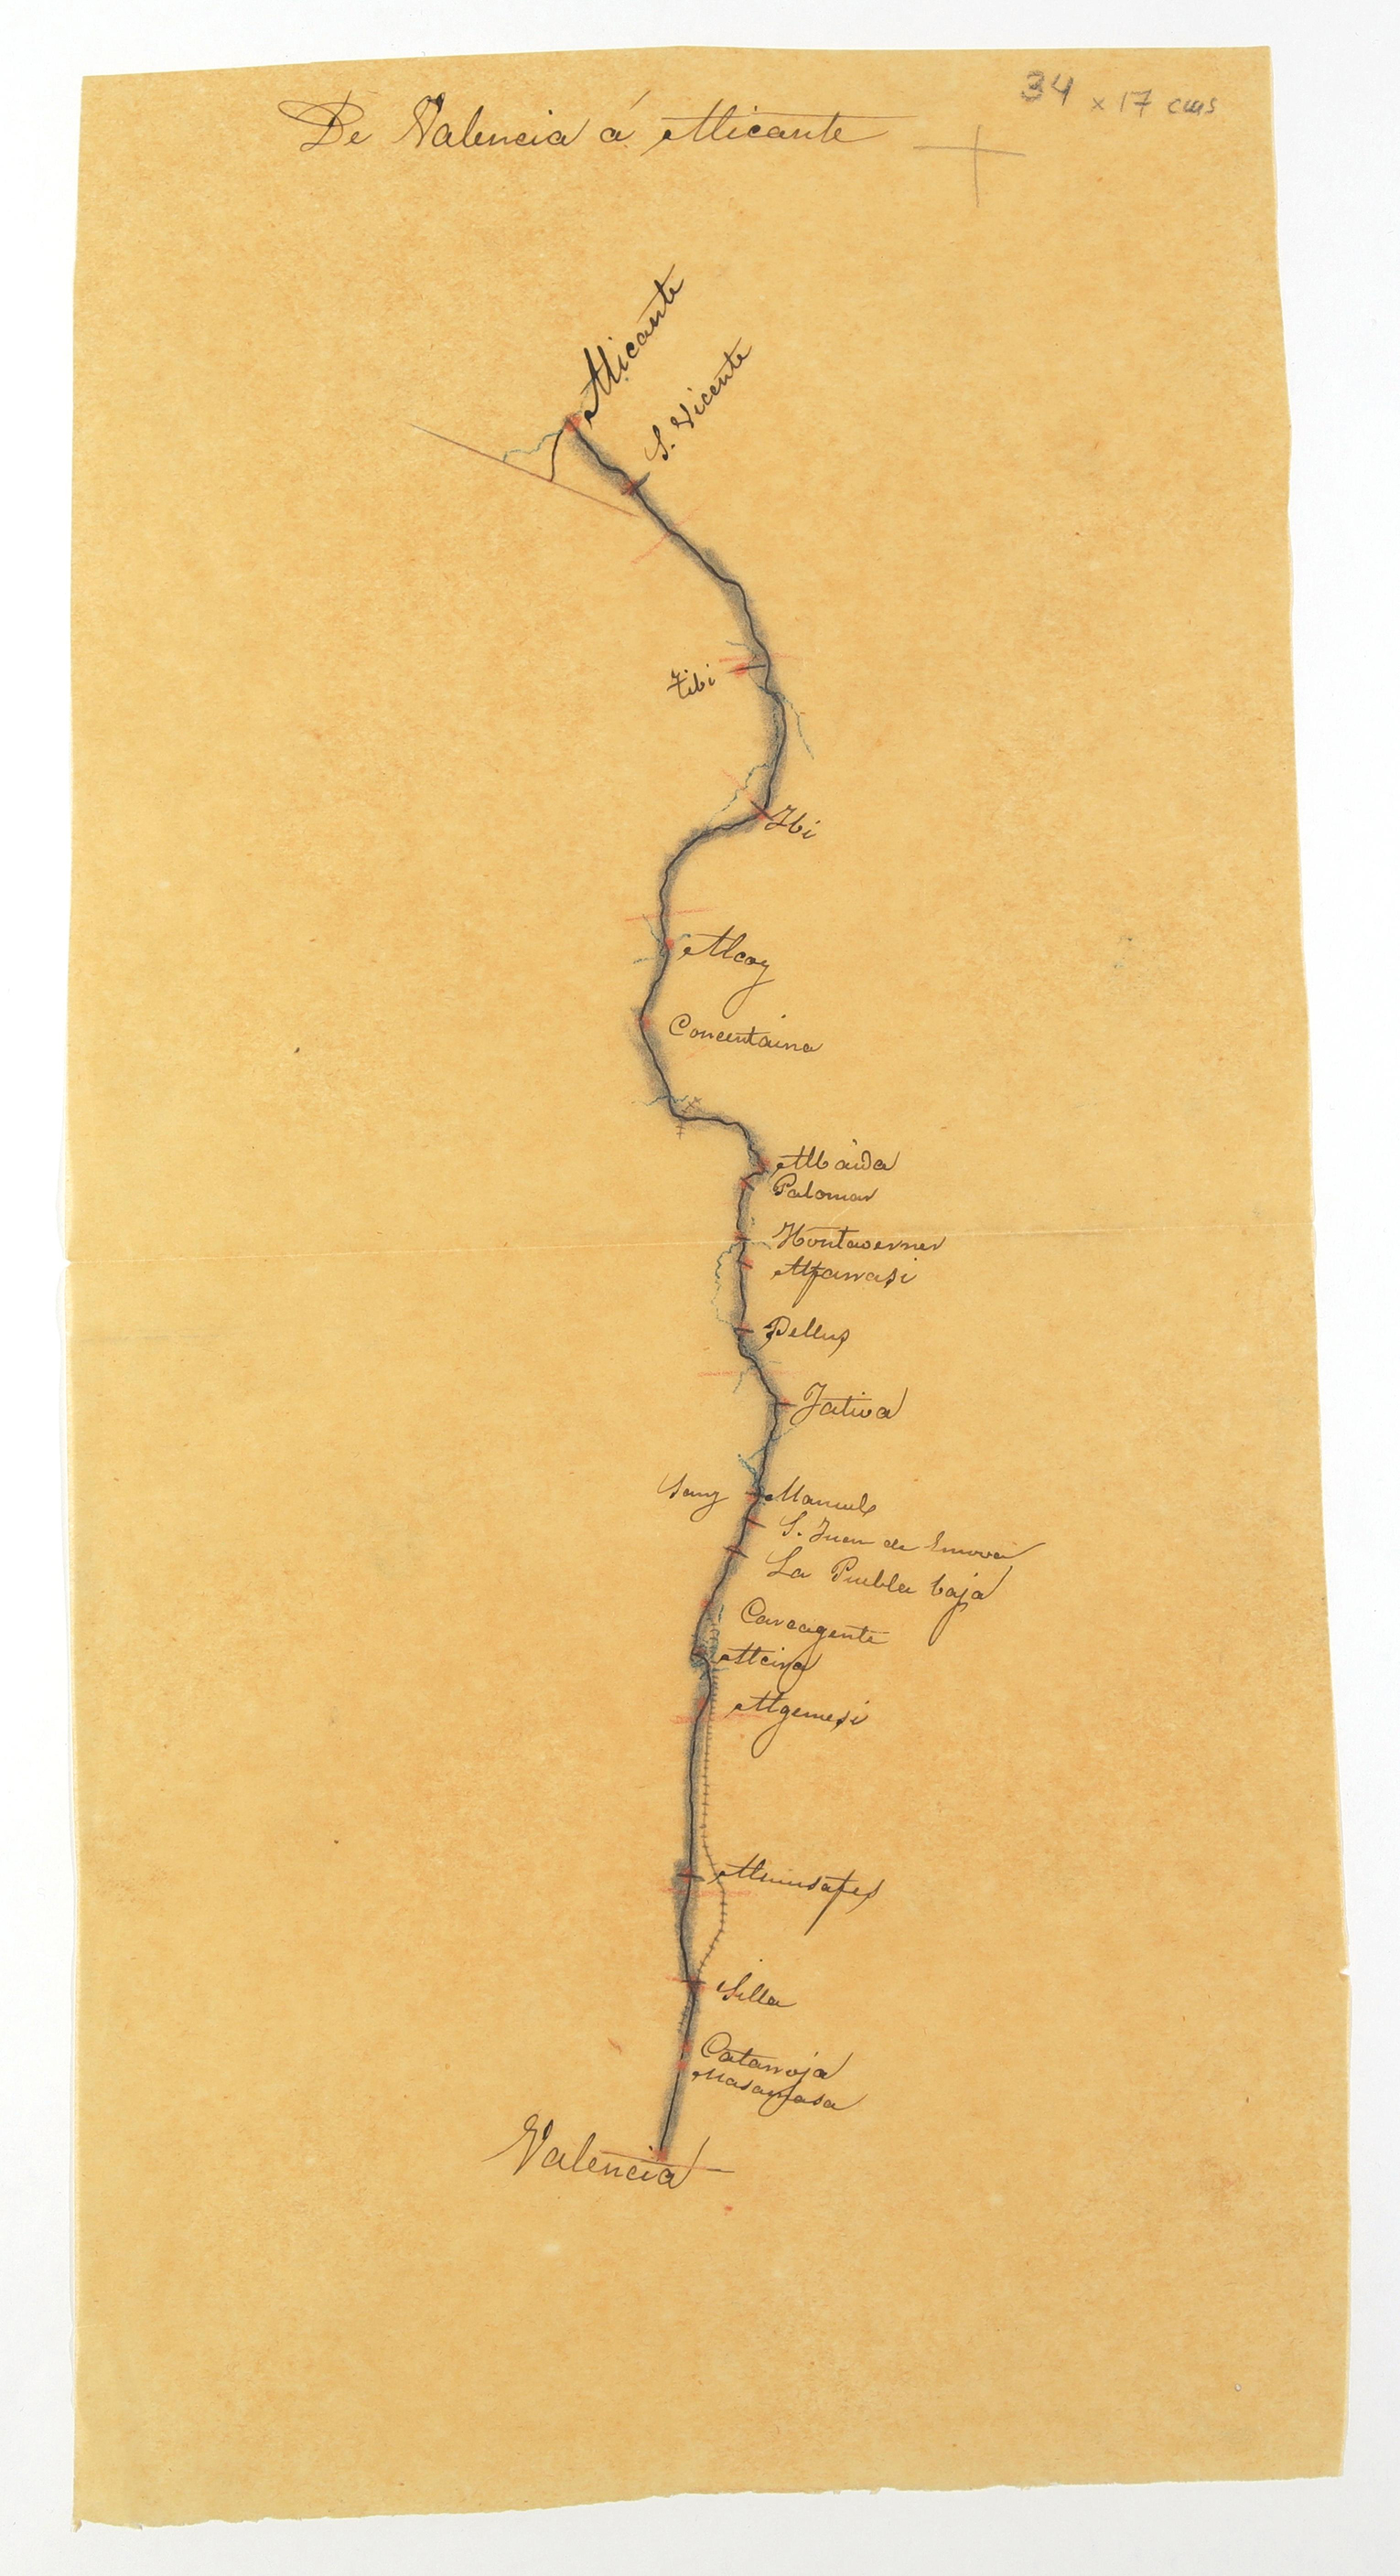 34 x 17 cms
De Valencia á Alicante
Alicante
S. Vicente
Tibi
Ibi
Alcoy
Concentaina
Albaida
Palomar
Montaverner
Alfarrasi
Bellus
Jativa
Manuels
S. Juan de Enova
La Puebla baja
Carcagente
Alcira
Algemesi
Almusafes
Silla
Catarroja
Masanasa
Valencia